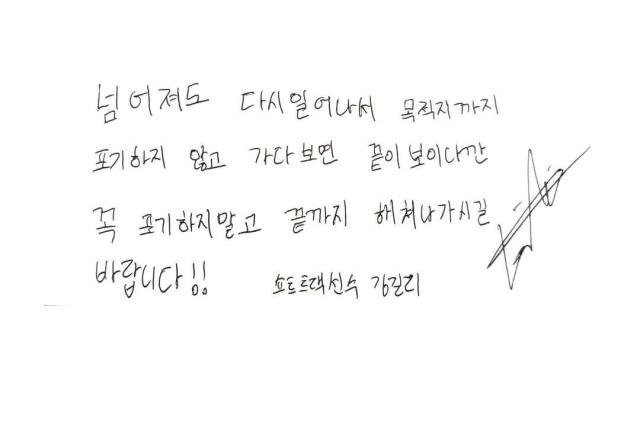 넘어져도 다시일어나서 목적지까지
포기하지 않고 가다보면 끝이 보이니깐
꼭 포기하지말고 끝까지 해쳐나가시길
바랍니다!!
쇼트트랙선수 김길리